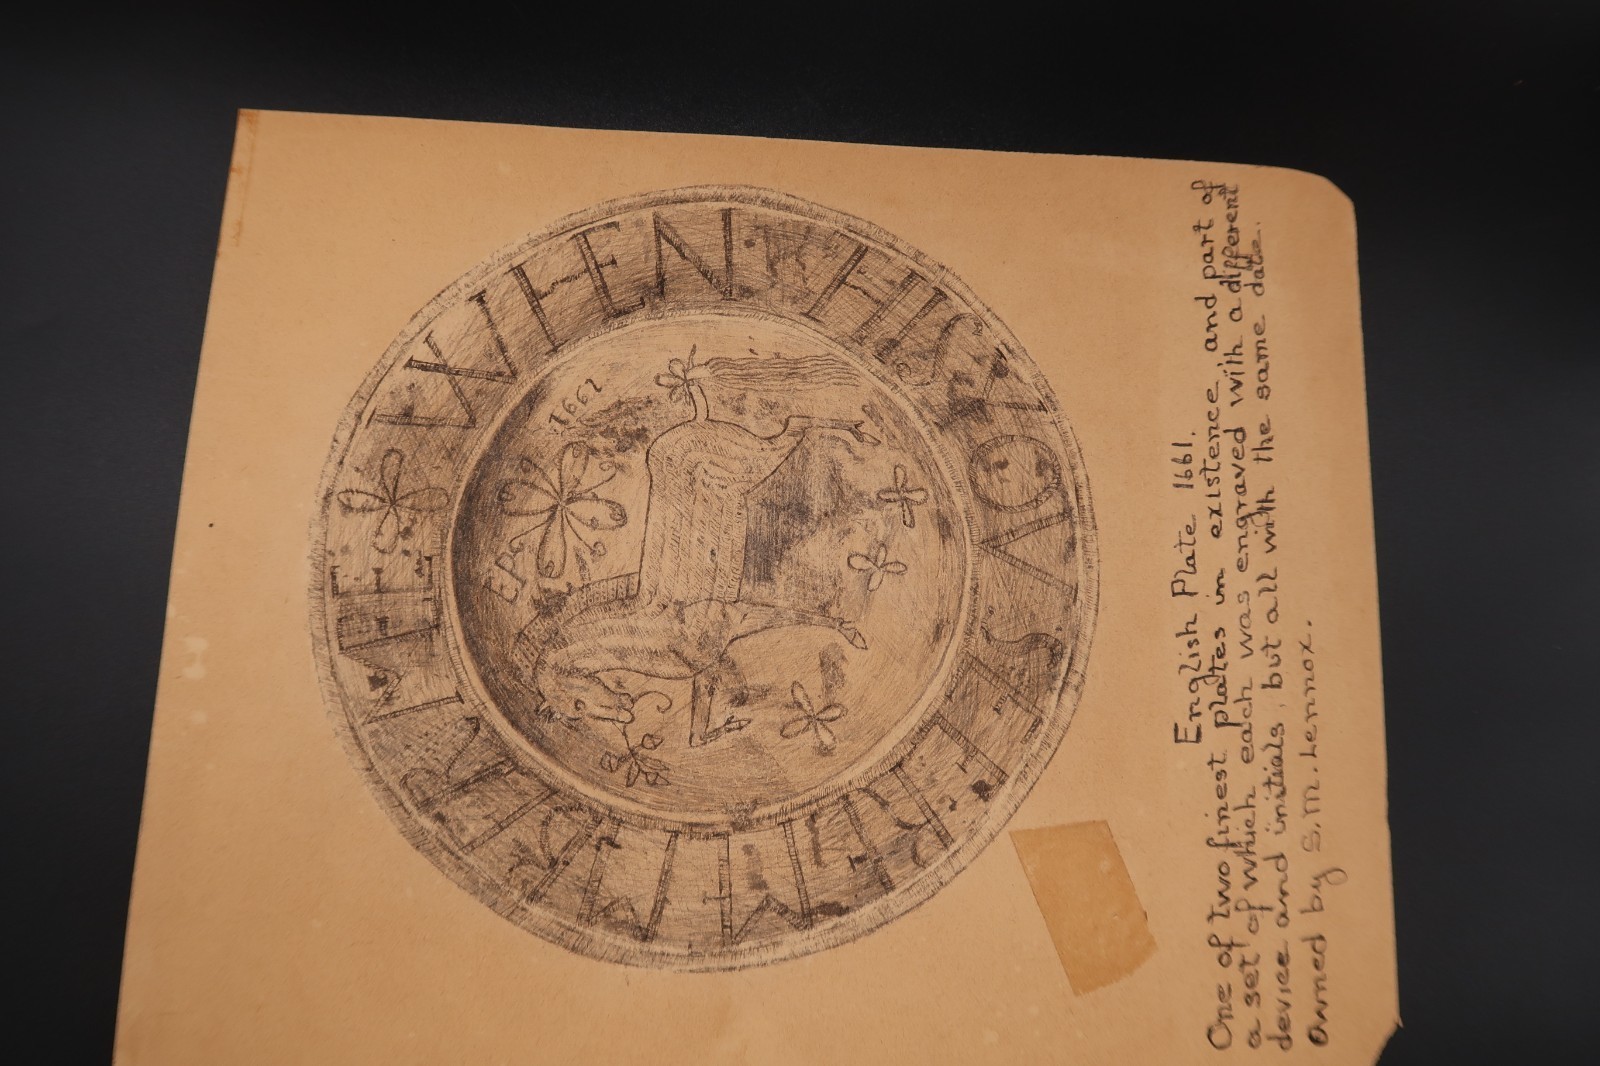 WHEN HIS YOV SE ME
EP 1661
English Plate 1661.
One of two finest plates in existence and part of
a set of which each was engraved with a different
device and initials, but all with the same date.
Owned by S.M. Lennox.